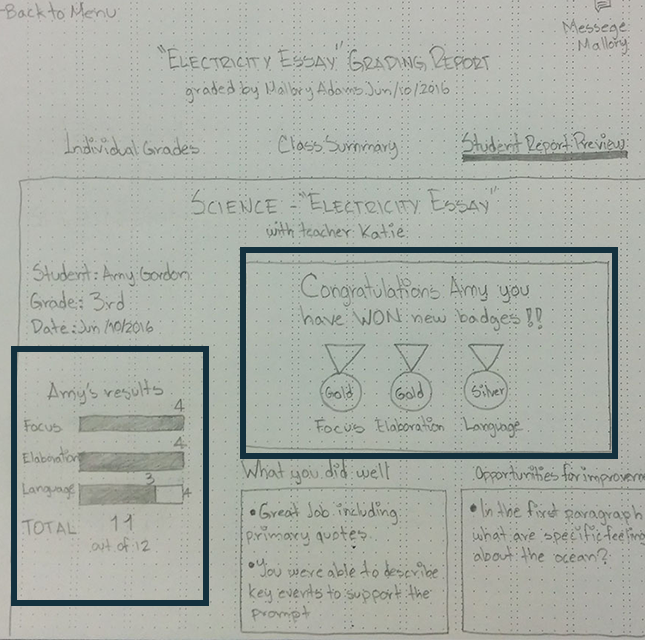 Back to Menu
Messege
Mallory
"ELECTRICITY ESSAY" GRADING REPORT
graded by Mallory Adams Jun/10/2016
Individual Grades
Class Summary
Student Report Preview
SCIENCE - "ELECTRICITY ESSAY"
with teacher Katie
Student: Amy Gordon
Grade: 3rd
Date: Jun/10/2016
Congratulations Amy you
have WON new badges!!
Gold Gold Silver
Focus Elaboration Language
Amy's results
4
Focus
4
Elaboration
3
Language 4
TOTAL 11
out of 12
What you did well
• Great Job including
primary quotes.
• You were able to describe
key events to support the
prompt
Opportunities for improvem
• In the first paragraph
what are specific feelin
about the ocean?